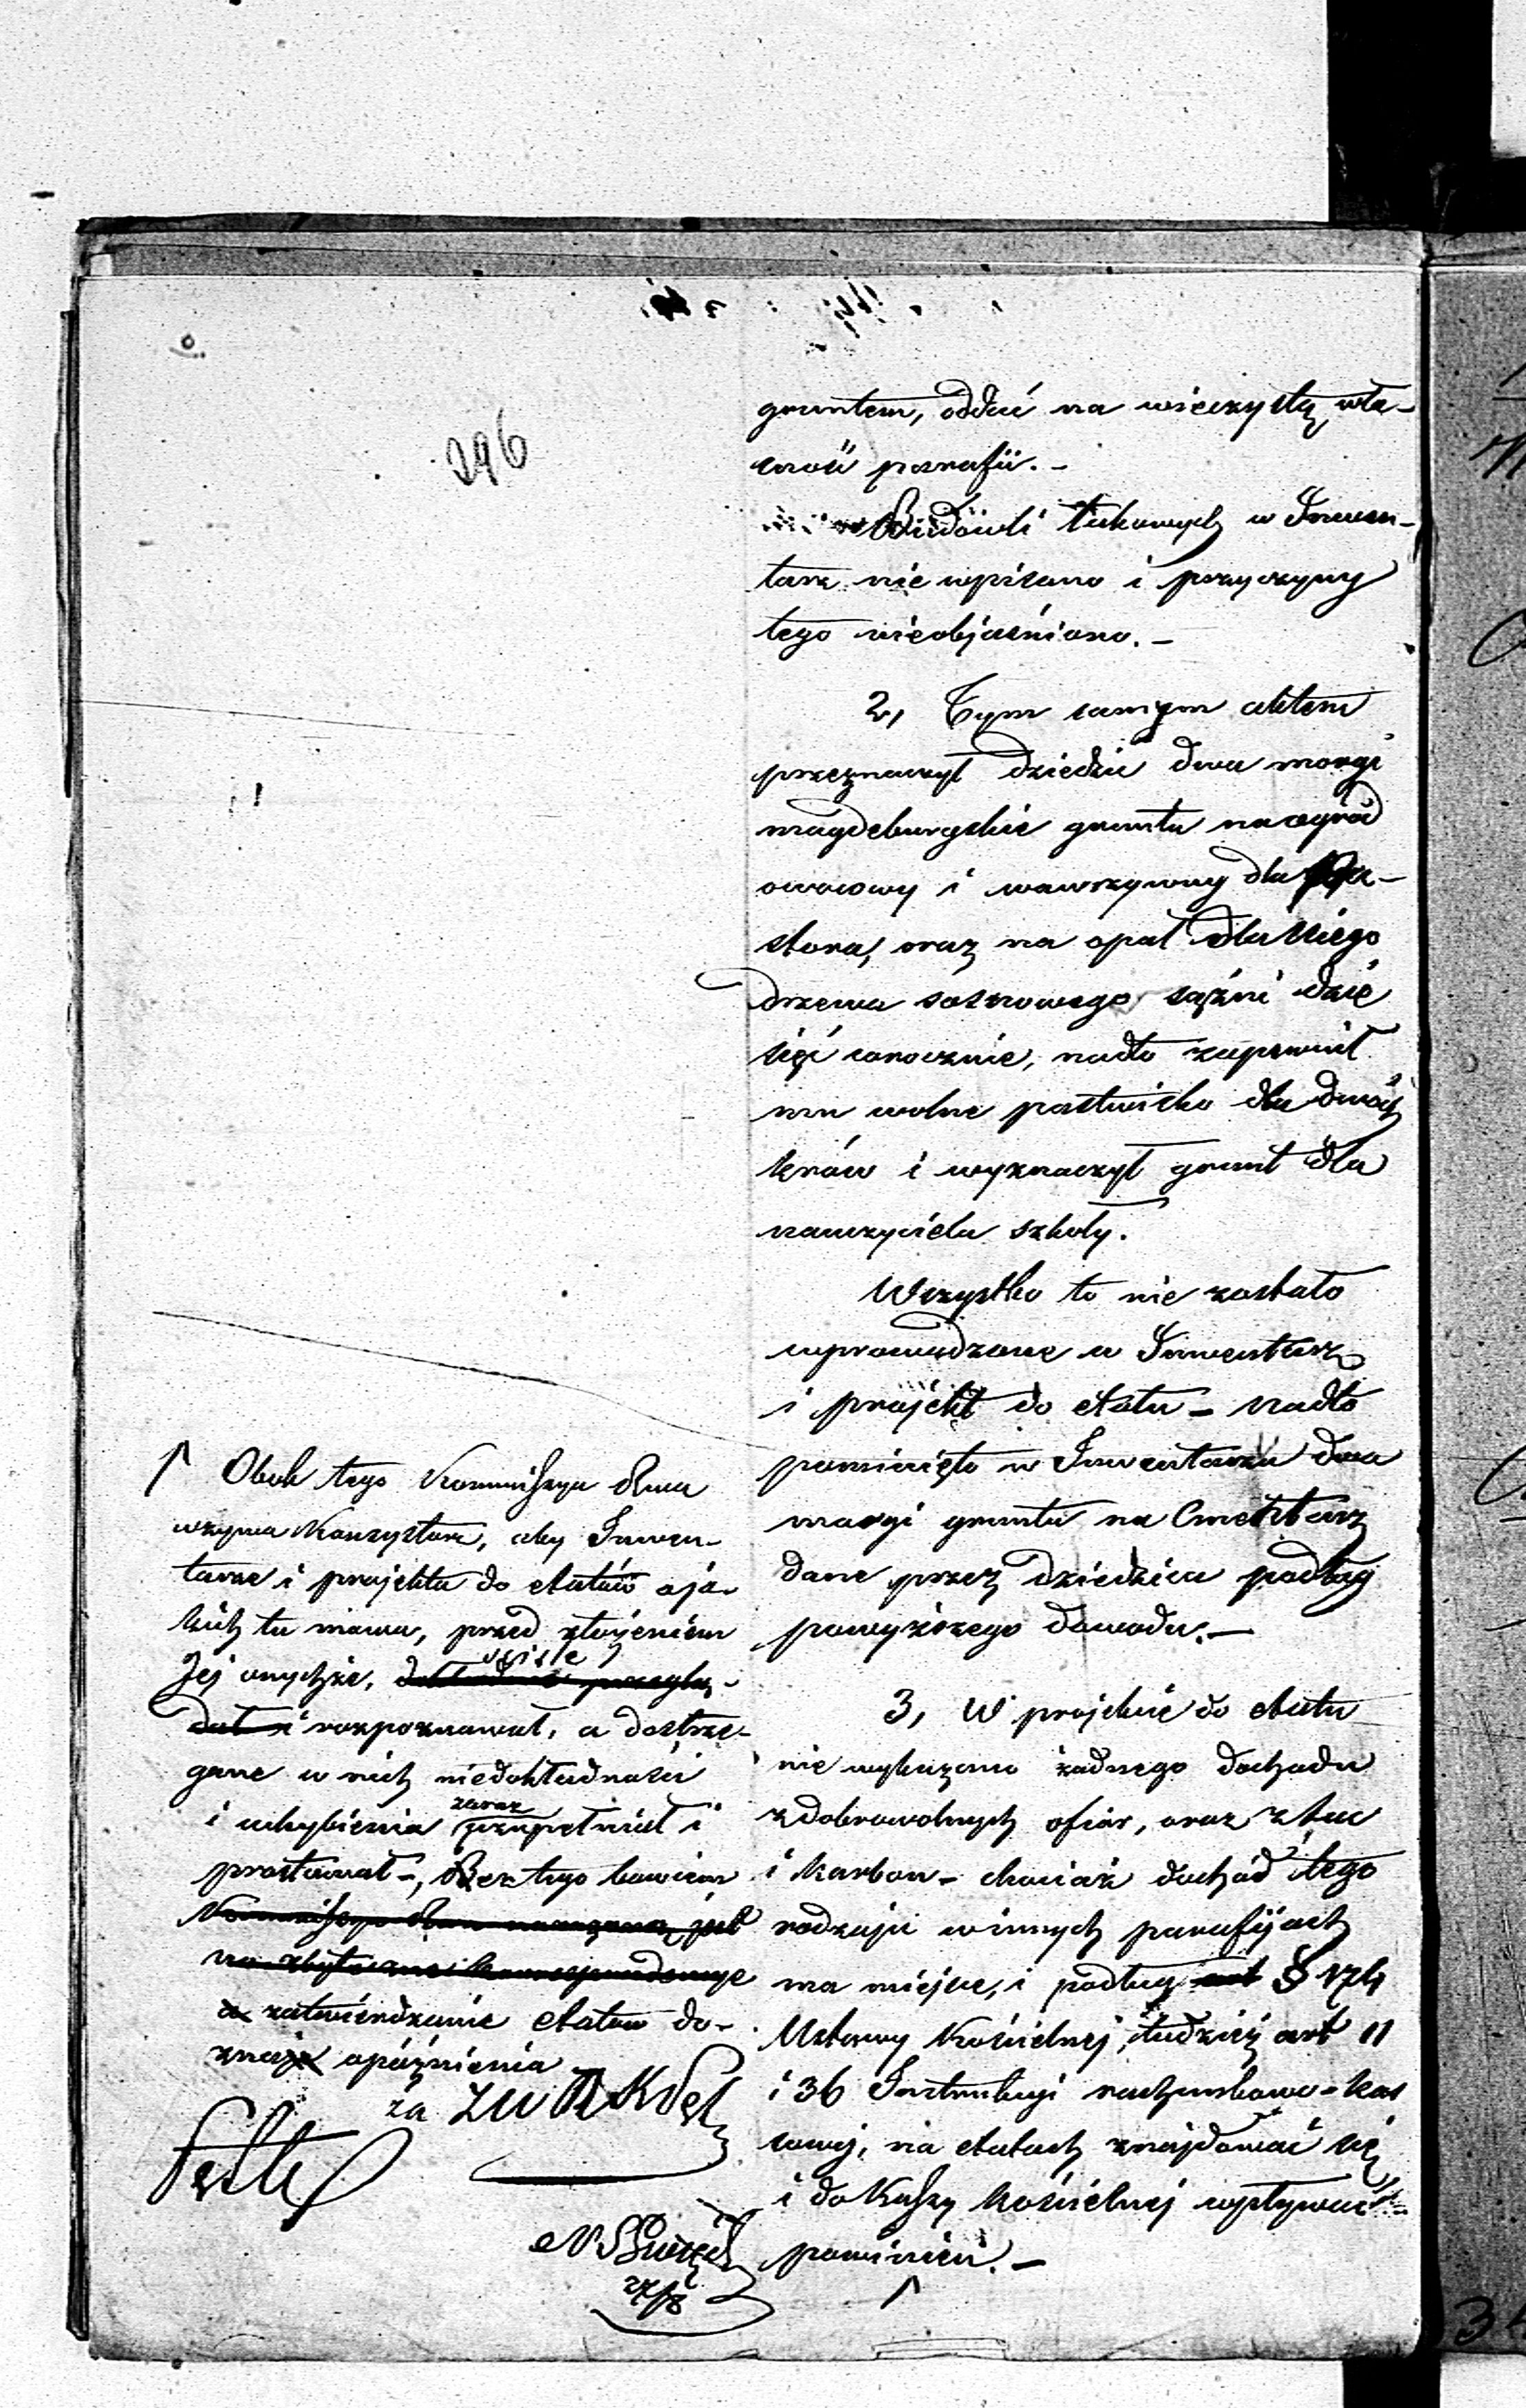 296
gruntem, oddać na wieczystą wła-
sność parafii. -
Budowli takowych w Inwen-
tarz nie wpisano i przyczyny
tego nieobjaśniono. -
2, Tym samym aktem
przeznaczył dziedzic dwa morgi
magdeburgskie gruntu na ogród
owocowy i warzywny dla Pa-
stora, oraz na opał dla niego
drzewa sosnowego sążni dzie
sięć corocznie, nadto zapewnił
mu wolne pastwisko dla dwóch
krów i wyznaczył grunt dla
nauczyciela szkoły.
Wszystko to nie zostało
wprowadzone w Inwentarz
i projekt do etatu - nadto
pominięto w Inwentarzu dwa
morgi gruntu na Cmentarz
dane przez dziedzica podług
powyższego dowodu. -
3, W projekcie do etatu
nie wykazano żadnego dochodu
z dobrowolnych ofiar, oraz z tac
i karbon - chociaż dochód tego
rodzaju w innych parafijach
ma miejsce, i podług § 174
Ustawy Kościelnej, tudzież art 11
i 36 Instrukcyi rachunkowo-kas
sowej, na etatach znajdować się
i do Kassy kościelnej wpływać
powinien. -
Obok tego Kommissya Rzwa
wzywa Konsystorz, aby Inwen-
tarze i projekta do etatów o ja-
kich tu mowa, przed złożeniem
Jej onychże, ściśle dokładnie przeglą-
dał i rozpoznawał, a dostrze-
gane w nich niedokładności
i uchybienia zaraz uzupełniał i
prostował -, Bez tego bowiem
Kommissya Rzwa narażoną jest
na zbyteczne korrespondencye
a zatwierdzanie etatów do-
znaje opóźnienia
za